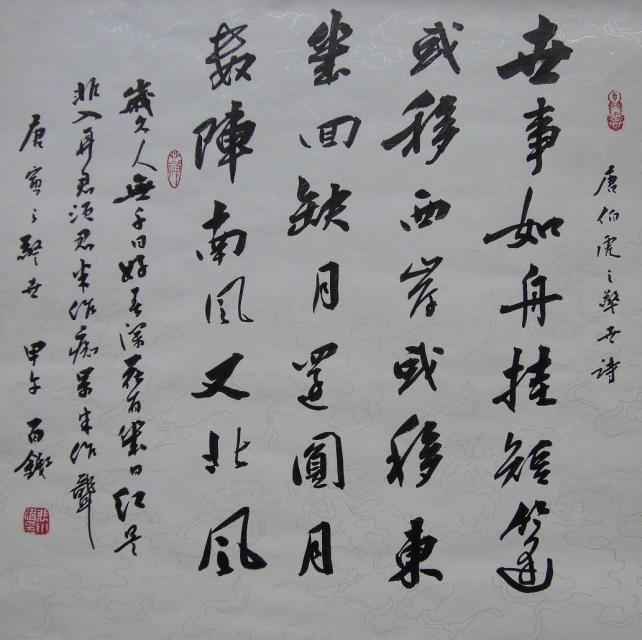 唐伯虎之警世詩
世事如舟挂短篷
或移西岸或移東
幾回缺月還圓月
數陣南風又北風
歲久人無千日好春深花有幾日紅是
非入耳君須忍半作痴呆半作聾
唐寅之警世 甲午 百